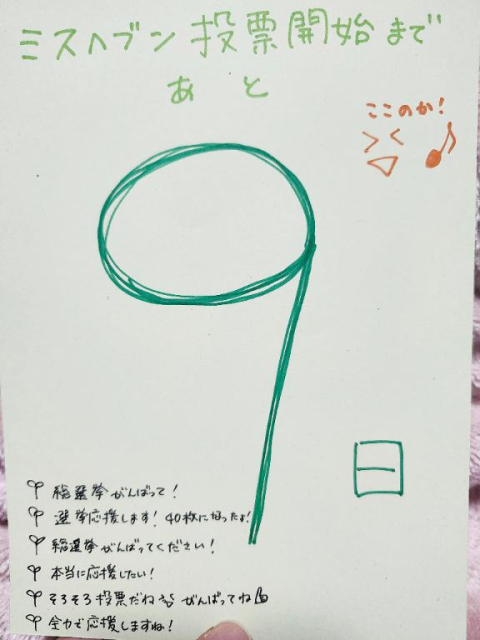 ミスヘブン投票開始まで
あと
ここのか!
9
日
総選挙がんばって!
選挙応援します! 40枚になったよ!
総選挙がんばってください!
本当に応援したい!
そろそろ投票だね がんばってね
全力で応援しますね!